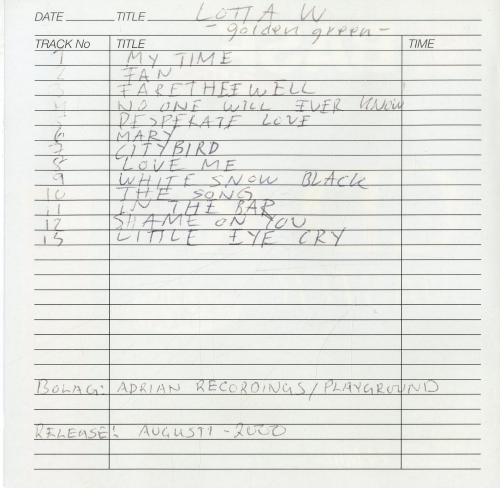 DATE TITLE LOTTA W
- golden green -
TRACK No TITLE TIME
1 MY TIME
2 FAN
3 FARETHEEWELL
4 NO ONE WILL EVER KNOW
5 DESPERATE LOVE
6 MARY
7 CITYBIRD
8 LOVE ME
9 WHITE SNOW BLACK
10 THE SONG
11 IN THE BAR
12 SHAME ON YOU
13 LITTLE EYE CRY
BOLAG: ADRIAN RECORDINGS/PLAYGROUND
RELEASE: AUGUSTI - 2000